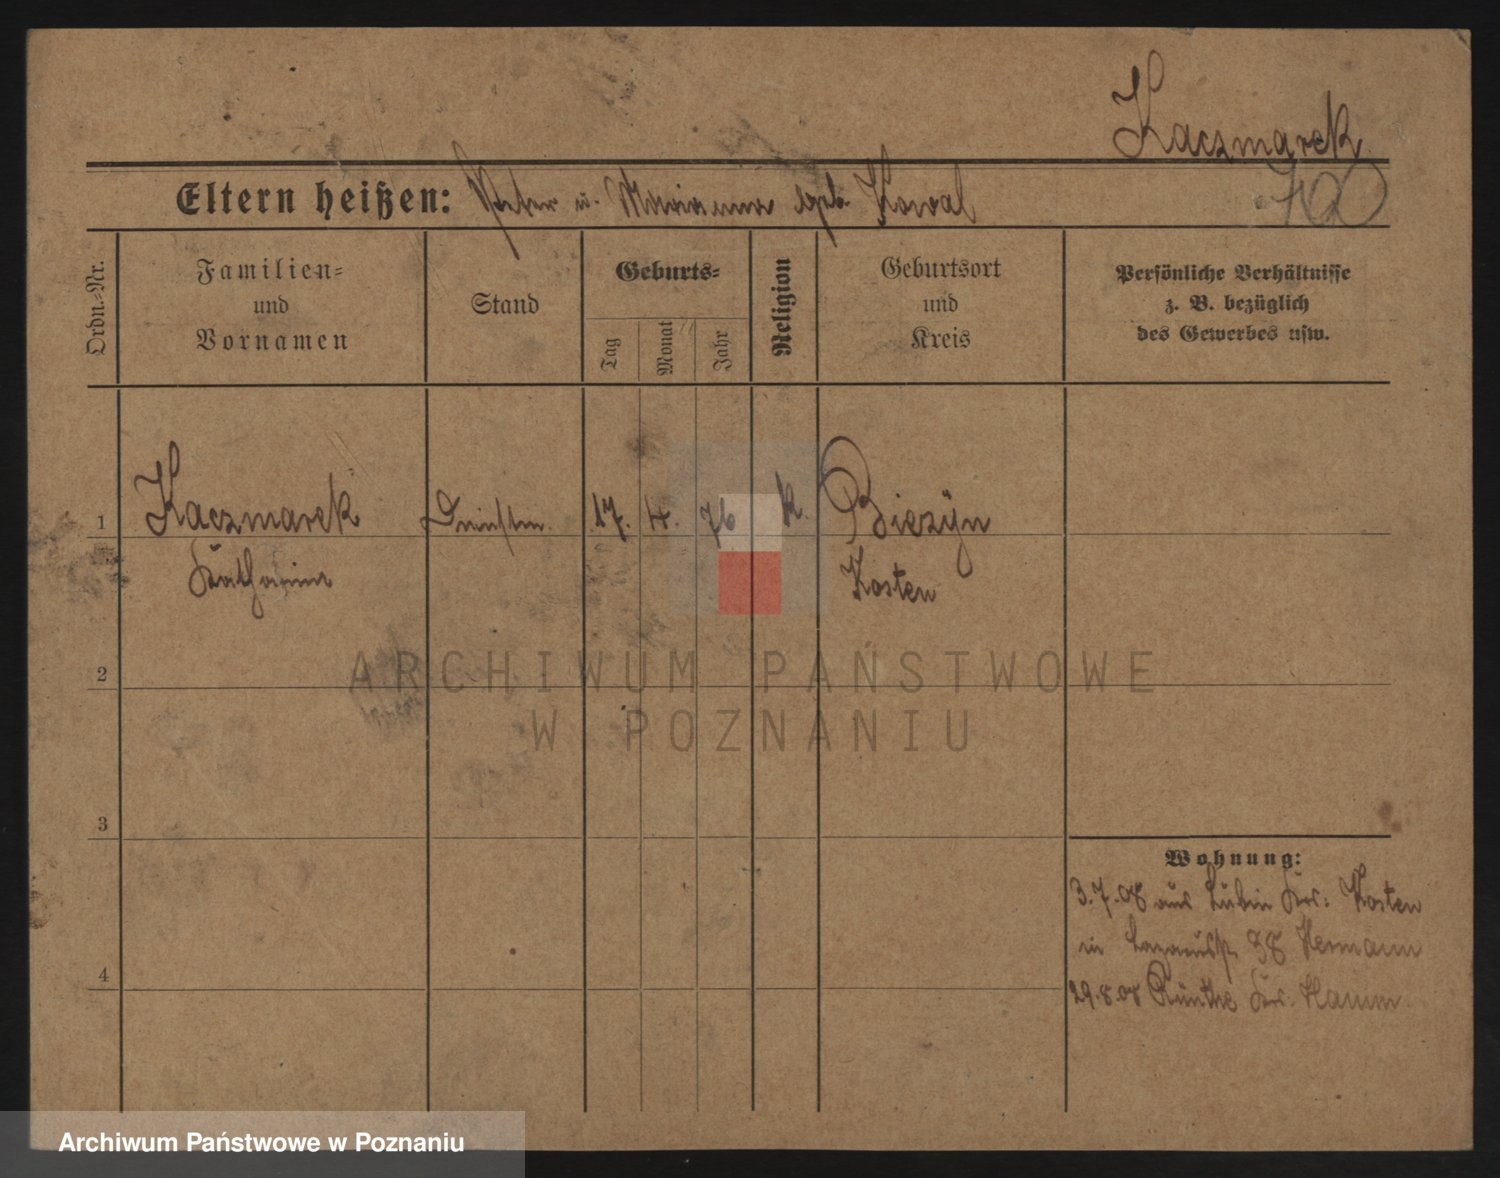 Kaczmarek
Eltern heißen: Peter u. Marianna geb. Kowal
700
Ordn.-Nr.
Familien-
und
Vornamen
Stand
Geburts-
Tag
Monat
Jahr
Religion
Geburtsort
und
Kreis
Persönliche Verhältnisse
z. B. bezüglich
des Gewerbes usw.
1
Kaczmarek
17. 4. 76
k.
Biezyn
Katharina
Kosten
2
ARCHIWUM PAŃSTWOWE
W POZNANIU
3
Wohnung:
3.7.08 aus Lubin Krs: Kosten
in 38 Hermann
4
29.8.08 Rünthe Krs. Hamm
Archiwum Państwowe w Poznaniu